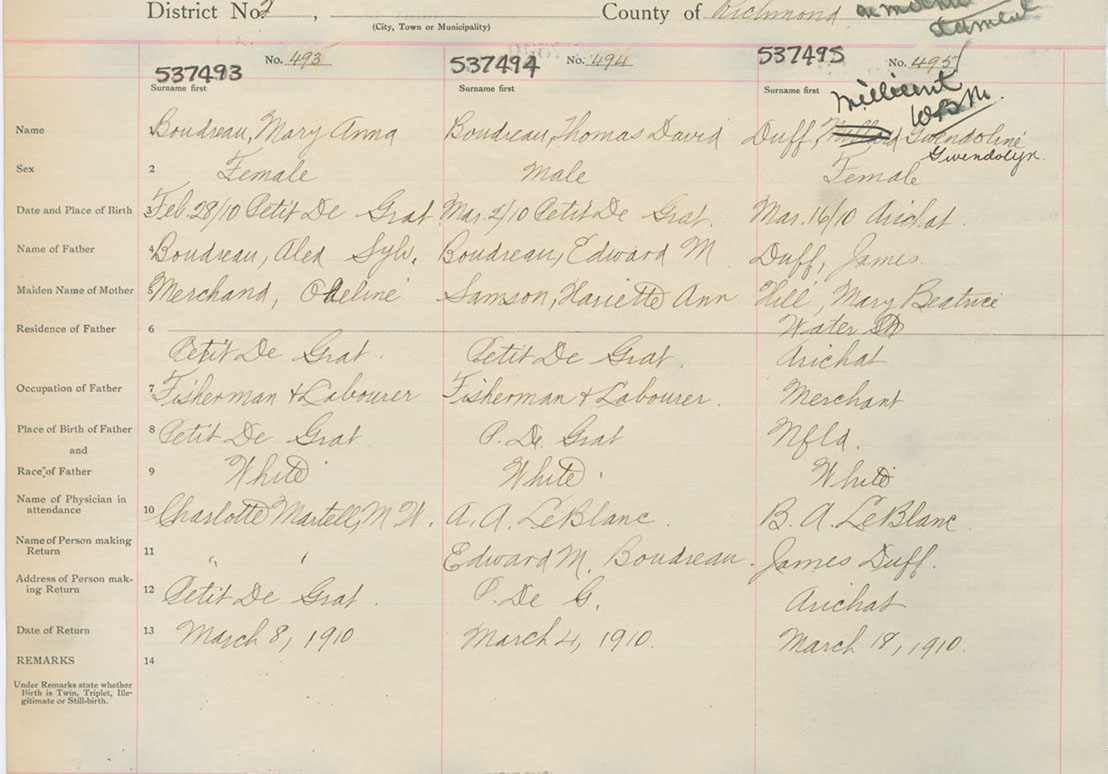 District No. 2, County of Richmond amend
(City, Town or Municipality)
No. 493 No. 494 No. 495
537493 537494 537495
Surname first Surname first Surname first Millicent
W.B.M.
Name 1 Boudreau, Mary Anna Boudreau, Thomas David Duff, Gwendoline
Gwendolyn.
Sex 2 Female Male Female
Date and Place of Birth 3 Feb. 28/10 Petit De Grat Mar. 2/10 Petit De Grat. Mar. 16/10 Arichat
Name of Father 4 Boudreau, Alex Sylv. Boudreau, Edward M Duff, James
Maiden Name of Mother 5 Merchand, Obeline Samson, Hariette Ann Hill, Mary Beatrice
Residence of Father 6 Water St
Petit De Grat. Petit De Grat. Arichat
Occupation of Father 7 Fisherman & Labourer Fisherman & Labourer. Merchant
Place of Birth of Father 8 Petit De Grat. P. De Grat Nfld.
and
Race of Father 9 White White White
Name of Physician in
attendance 10 Charlotte Martell, M.W. A. A. LeBlanc. B. A. LeBlanc
Name of Person making
Return 11 " " Edward M. Boudreau. James Duff.
Address of Person mak-
ing Return 12 Petit De Grat. P. De G. Arichat
Date of Return 13 March 8, 1910. March 4, 1910. March 18, 1910.
REMARKS 14
Under Remarks state whether
Birth is Twin, Triplet, Ille-
gitimate or Still-birth.